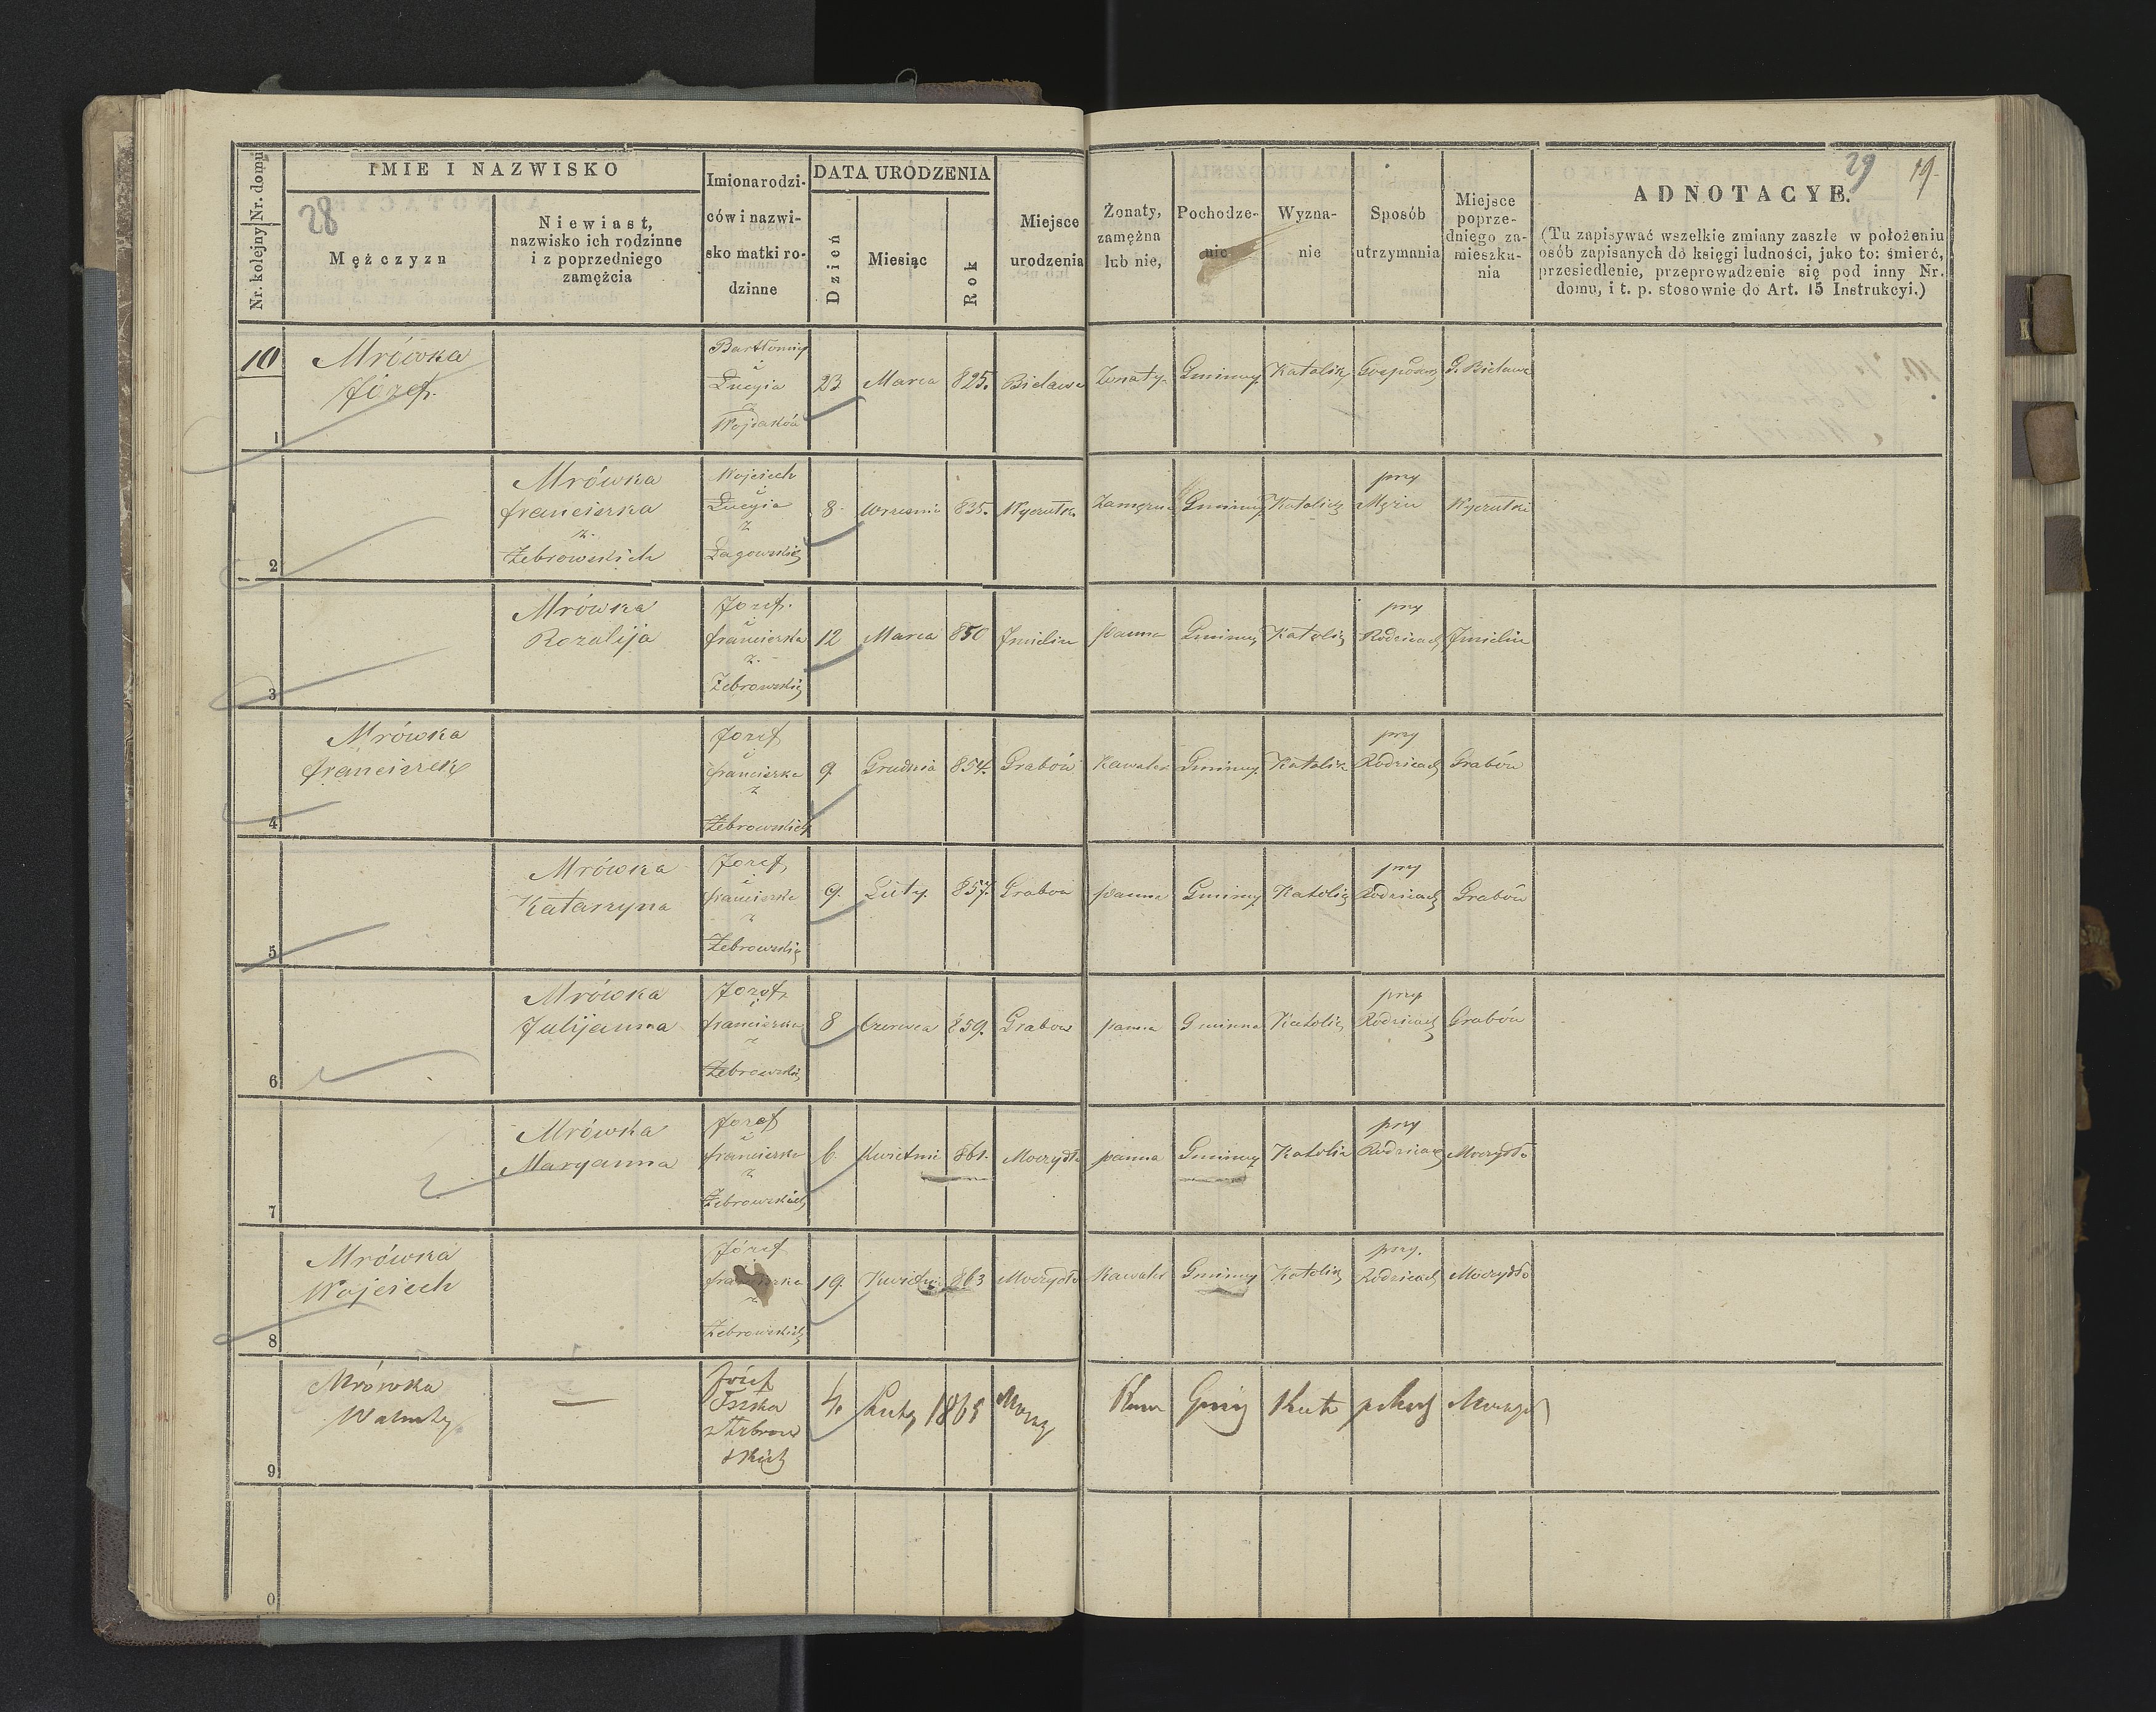 28
29
19.
Nr. kolejny Nr. domu
IMIE I NAZWISKO
Mężczyzn
Niewiast,
nazwisko ich rodzinne
i z poprzedniego
zamężcia
Imiona rodzi-
ców i nazwi-
sko matki ro-
dzinne
DATA URODZENIA
Dzień
Miesiąc
Rok
Miejsce
urodzenia
Żonaty,
zamężna
lub nie,
Pochodze-
nie
Wyzna-
nie
Sposób
utrzymania
Miejsce
poprze-
dniego za-
mieszka-
nia
ADNOTACYE.
(Tu zapisywać wszelkie zmiany zaszłe w położeniu
osób zapisanych do księgi ludności, jako to: śmierć,
przesiedlenie, przeprowadzenie się pod inny Nr.
domu, i t. p. stosownie do Art. 15 Instrukcyi.)
10
1
Mrówka
Józef.
Bartłomiej
i
Łucyia
z
Wojdaków
23 Marca 825. Bielawa Żonaty. Gminny. Katolik Gospodarz G. Bielawa
2
Mrówka
franciszka
z.
Żebrowskich
Wojciech
i
Łucyia
z
Łagowskich
8. Września 835. Zamężna Gminny Katolicz przy
Mężu
3
Mrówka
Rozalija
Jozef.
i
franciszka
z.
Żebrowskich
12 Marca 850 Imielin panna Gminny Katolicz przy
Rodzicach Imielin
4
Mrówka
franciszek
Jozef
i
franciszka
z
Żebrowskich
9 Grudnia 854. Grabów Kawaler Gminny. Katolik przy
Rodzicach Grabów
5
Mrówka
Katarzyna
Jozef
i
franciszka
z
Żebrowskich
9. Luty. 857. Grabów panna Gminny Katolicz przy
Rodzicach Grabów
6
Mrówka
Julijanna
Jozef
i
franciszka
z
Żebrowskich
8 Czerwca 859. Grabow panna Gminna Katolicz przy
Rodzicach Grabów
7
Mrówka
Maryanna
Jozef
i
franciszka
z
Żebrowskich
6. Kwietnia 861. Moczydło panna Gminny Katolicz przy
Rodzicach Moczydło
8
Mrówka
Wojciech
Józef
i
franciszka
z
Żebrowskich
19. Kwietnia 863 Moczydło Kawaler Gminny Katolik przy.
Rodzicach Moczydło
9
Mrówka
Walenty
—
Józef
Fszka
z Żebrow
skich
4. Luty 1865
0